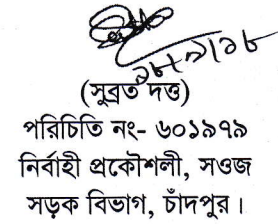 ১৮/৯/১৮
(সুব্রত দত্ত)
পরিচিতি নং- ৬০১৯৭৯
নির্বাহী প্রকৌশলী, সওজ
সড়ক বিভাগ, চাঁদপুর।